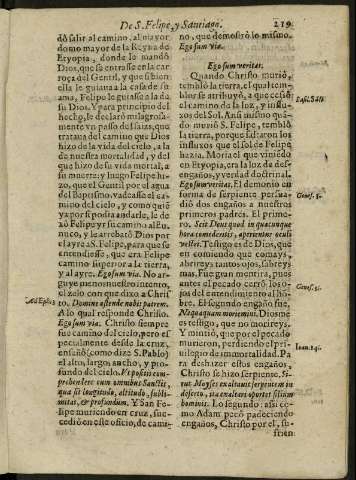 De S. Felipe, y Santiago.
219
dò salir al camino, al mayor-
domo mayor de la Reyna de
Etyopia, donde le mandò
Dios, que se entrasse en la car-
roça del Gentil, y que si bien
ella le guiaua a la casa de su
ama, Felipe le guiasse a la de
su Dios. Y para principio del
hecho, le declarò milagrosa-
mente vn passo de Isaias, que
trataua del camino que Dios
hizo de la vida del cielo, a la
de nuestra mortalidad, y del
que hizo de su vida mortal, a
su muerte: y luego Felipe hi-
zo, que el Gentil por el agua
del Baptismo, vadeasse el ca-
mino del cielo, y como quiẽ
ya por si podia andarle, le de-
xò Felipe y su camino al Eu-
nuco, y le arrebatò Dios por
el ayre a S. Felipe, para que se
entendiesse, que era Felipe
camino superior a la tierra,
y al ayre. Ego sum via. No ar-
guye menos nuestro intento,
el zelo con que dixo a Chris-
to. Domine ostende nobis patrem.
A lo qual responde Christo.
Ego sum via. Christo siempre
fue camino del cielo, pero es-
pecialmente desde la cruz,
enseñò (como dize S. Pablo)
el alto, largo, ancho, y pro-
fundo del cielo. Vt possitis com-
prehendere cum omnibus Sanctis,
qua sit longitudo, altitudo, subli-
mitas, & profundum. Y San Fe-
lipe muriendo en cruz, suc-
cediò en este oficio, de cami-
Ad Ephes. 3.
no, que demostrò lo mismo.
Ego sum via.
Ego sum veritas.
Quando Christo muriò,
temblò la tierra, el qual tem-
blor se atribuyò, a que cessò
el camino de la luz, y influ-
xos del Sol. Assi mismo quã-
do muriò S. Felipe, temblò
la tierra, porque faltaron los
influxos que el sol de Felipe
hazia. Moria el que viniẽdo
en Etyopia, era la luz de des-
engaños, y verdad doctrinal.
Ego sum veritas. El demonio en
forma de serpiente persua-
diò dos engaños a nuestros
primeros padres. El prime-
ro. Scit Deus quod in quacunque
hora comederitis, aperientur oculi
vestri. Testigo es de Dios, que
en comiendo que comays,
abrireys tantos ojos, sabreys
mas. Fue gran mentira, pues
antes el pecado cerrò los o-
jos del entendimiento al hõ-
bre. El segundo engaño fue,
Nequaquam moriemini. Diosme
es testigo, que no morireys.
Y mintiò, que por el pecado
murieron, perdiendo el pri-
uilegio de immortalidad. Pa
ra deshazer estos engaños,
Christo se hizo serpiente. Si-
cut Moyses exaltauit serpentem in
deserto, ita exaltari oportet filium
hominis. Lo segundo: assi co-
mo Adam pecò padeciendo
engaños, Christo por el, su-
frien
Genes. 3.
Genes. 3.
Ioan. 14.